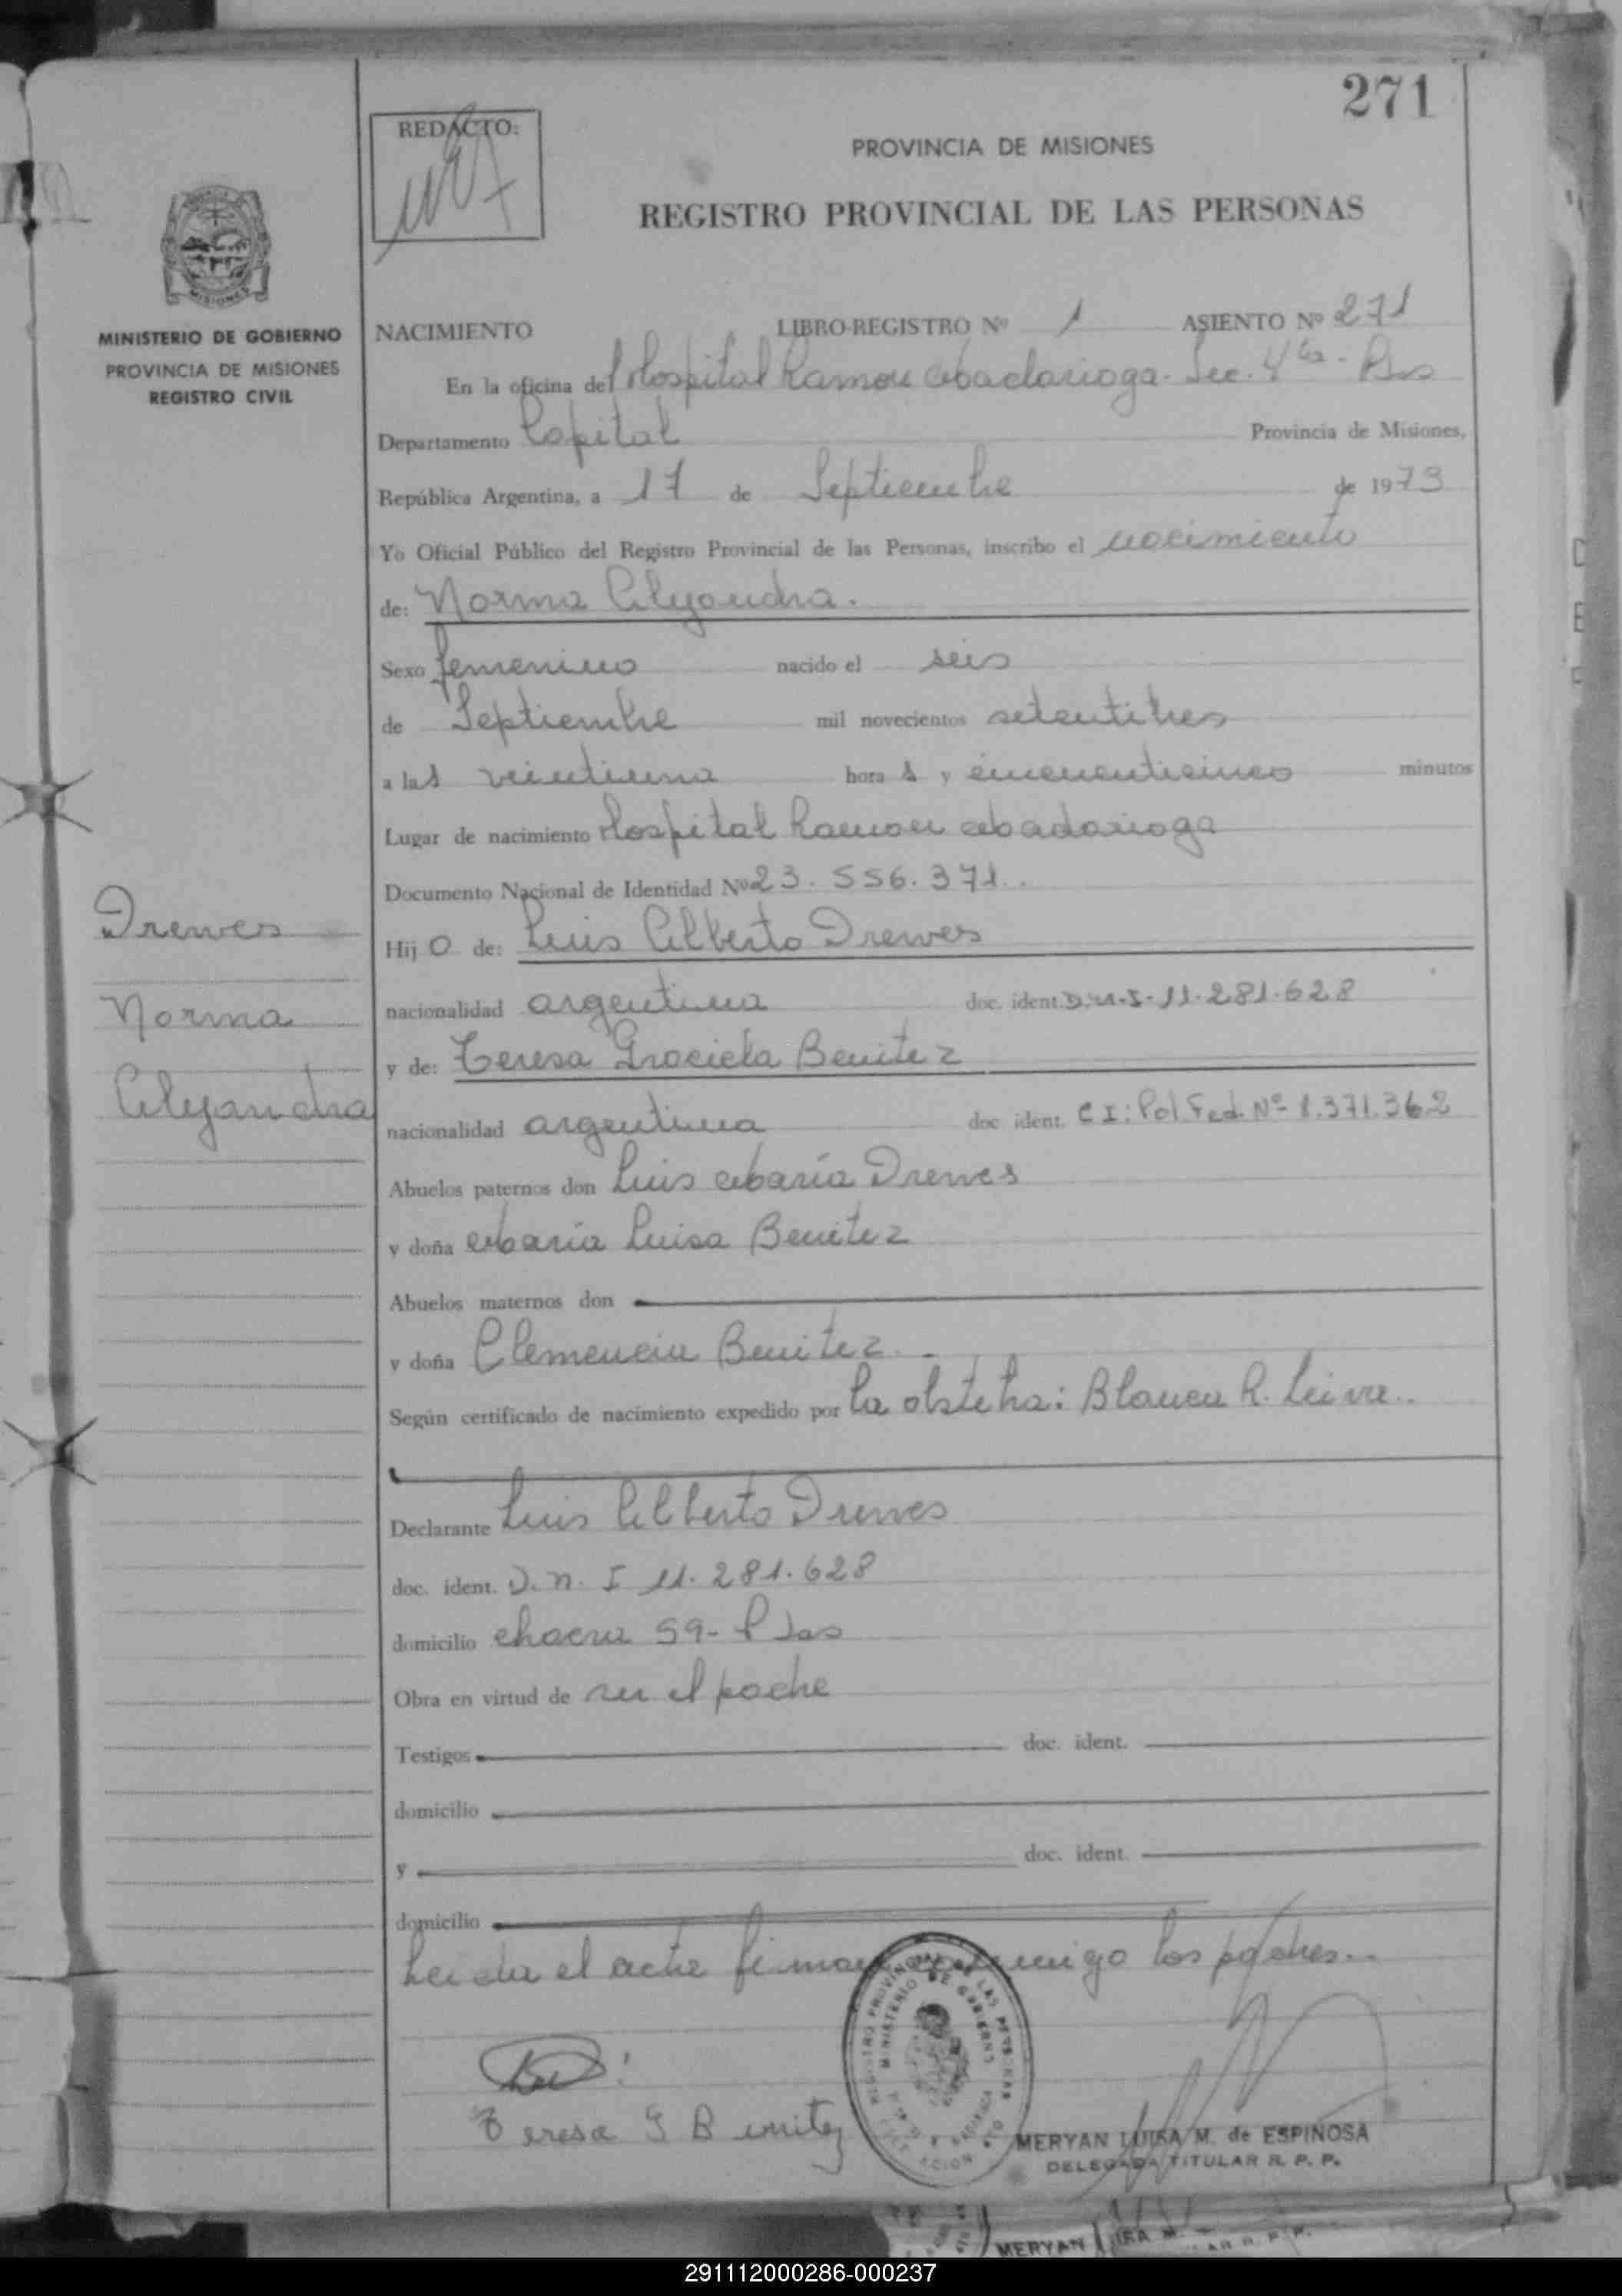 271
REDACTO:
PROVINCIA DE MISIONES
REGISTRO PROVINCIAL DE LAS PERSONAS
MISIONES
MINISTERIO DE GOBIERNO
PROVINCIA DE MISIONES
REGISTRO CIVIL
NACIMIENTO LIBRO-REGISTRO Nº 1 ASIENTO Nº 271
En la oficina del Hospital Ramon Madariaga - Sec. 4ta - Pdas
Departamento Capital Provincia de Misiones,
República Argentina, a 17 de Septiembre de 1973
Yo Oficial Público del Registro Provincial de las Personas, inscribo el nacimiento
de: Norma Alejandra.
Sexo femenino nacido el seis
de Septiembre mil novecientos setentitres
a las veintiuna hora s y cincuenticinco minutos
Lugar de nacimiento Hospital Ramon Madariaga
Documento Nacional de Identidad Nº 23.556.371.
Drewes
Norma
Alejandra
Hij o de: Luis Alberto Drewes
nacionalidad argentina doc. ident. D.N.I. 11.281.628
y de: Teresa Graciela Benitez
nacionalidad argentina doc. ident. C I: Pol Fed. Nº 1.371.362
Abuelos paternos don Luis María Drewes
y doña María Luisa Benitez
Abuelos maternos don
y doña Clemencia Benitez.
Según certificado de nacimiento expedido por la obstetra: Blanca R. Leiva..
Declarante Luis Alberto Drewes
doc. ident. D.N.I 11.281.628
domicilio chacra 59 - Pdas
Obra en virtud de ser el padre
Testigos doc. ident.
domicilio
y doc. ident.
domicilio
Leida el acta firman conmigo los padres..
Teresa G Benitez
REGISTRO PROVINCIAL DE LAS PERSONAS
MINISTERIO DE GOBIERNO
MERYAN LUISA M. de ESPINOSA
DELEGADA TITULAR R. P. P.
MERYAN
291112000286-000237